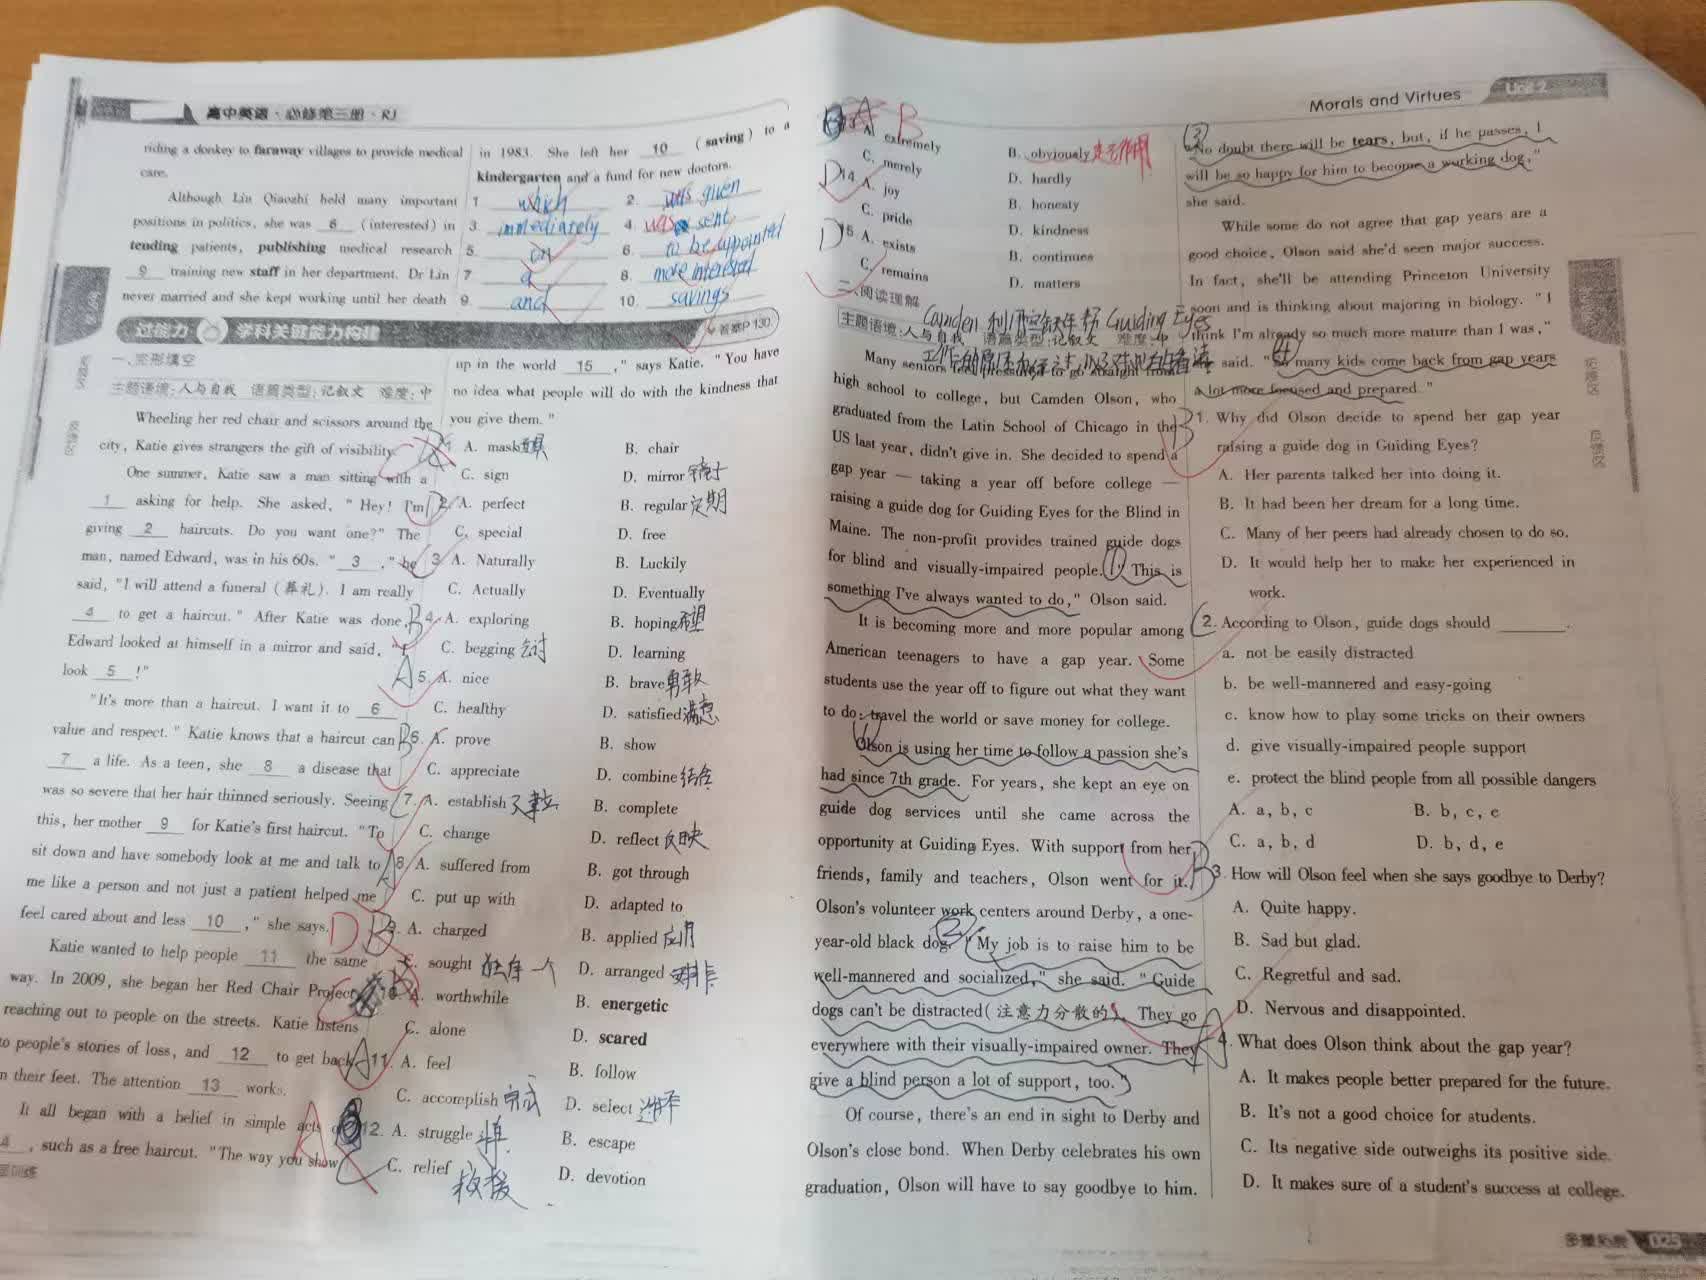 高中英语·必修第三册·RJ
riding a donkey to faraway villages to provide medical
care.
Although Lin Qiaozhi held many important
positions in politics, she was 8 (interested) in
tending patients, publishing medical research
9 training new staff in her department. Dr Lin
never married and she kept working until her death
in 1983. She left her 10 (saving) to a
kindergarten and a fund for new doctors.
1 which 2. was given
3. immediately 4. was sent
5. on 6. to be appointed
7 a 8. more interested
9. and 10. savings
过能力 学科关键能力构建 答案P130
一、完形填空
主题语境:人与自我 语篇类型:记叙文 难度:中
Wheeling her red chair and scissors around the
city, Katie gives strangers the gift of visibility.
One summer, Katie saw a man sitting with a
1 asking for help. She asked, "Hey! I'm
giving 2 haircuts. Do you want one?" The
man, named Edward, was in his 60s. " 3 ," he
said, "I will attend a funeral (葬礼). I am really
4 to get a haircut." After Katie was done,
Edward looked at himself in a mirror and said, "I
look 5 !"
"It's more than a haircut. I want it to 6
value and respect." Katie knows that a haircut can
7 a life. As a teen, she 8 a disease that
was so severe that her hair thinned seriously. Seeing
this, her mother 9 for Katie's first haircut. "To
sit down and have somebody look at me and talk to
me like a person and not just a patient helped me
feel cared about and less 10 ," she says.
Katie wanted to help people 11 the same
way. In 2009, she began her Red Chair Project,
reaching out to people on the streets. Katie listens
to people's stories of loss, and 12 to get back
on their feet. The attention 13 works.
It all began with a belief in simple acts of
4 , such as a free haircut. "The way you show
up in the world 15 ," says Katie. "You have
no idea what people will do with the kindness that
you give them."
1. A. mask 面具 B. chair
C. sign D. mirror 镜子
B 2. A. perfect B. regular 定期
C. special D. free
3. A. Naturally B. Luckily
C. Actually D. Eventually
B 4. A. exploring B. hoping 希望
C. begging 乞讨 D. learning
A 5. A. nice B. brave 勇敢
C. healthy D. satisfied 满意
B 6. A. prove B. show
C. appreciate D. combine 结合
C 7. A. establish 建立 B. complete
C. change D. reflect 反映
A 8. A. suffered from B. got through
C. put up with D. adapted to
D 9. A. charged B. applied 应用
C. sought D. arranged 安排
10. A. worthwhile B. energetic
C. alone D. scared
A 11. A. feel B. follow
C. accomplish 完成 D. select 选择
A 12. A. struggle B. escape
C. relief 救援 D. devotion
Morals and Virtues Unit 2
B
A. extremely B. obviously
C. merely D. hardly
D 14. A. joy B. honesty
C. pride D. kindness
D 15. A. exists B. continues
C. remains D. matters
二、阅读理解
主题语境:人与自我 语篇类型:记叙文 难度:中
Camden 利用空缺年帮 Guiding Eyes
Many seniors
high school to college, but Camden Olson, who
graduated from the Latin School of Chicago in the
US last year, didn't give in. She decided to spend a
gap year — taking a year off before college —
raising a guide dog for Guiding Eyes for the Blind in
Maine. The non-profit provides trained guide dogs
for blind and visually-impaired people. ① "This is
something I've always wanted to do," Olson said.
It is becoming more and more popular among
American teenagers to have a gap year. Some
students use the year off to figure out what they want
to do, travel the world or save money for college.
Olson is using her time to follow a passion she's
had since 7th grade. For years, she kept an eye on
guide dog services until she came across the
opportunity at Guiding Eyes. With support from her
friends, family and teachers, Olson went for it.
Olson's volunteer work centers around Derby, a one-
year-old black dog. ② "My job is to raise him to be
well-mannered and socialized," she said. "Guide
dogs can't be distracted(注意力分散的). They go
everywhere with their visually-impaired owner. They
give a blind person a lot of support, too."
Of course, there's an end in sight to Derby and
Olson's close bond. When Derby celebrates his own
graduation, Olson will have to say goodbye to him.
③
"No doubt there will be tears, but, if he passes, I
will be so happy for him to become a working dog,"
she said.
While some do not agree that gap years are a
good choice, Olson said she'd seen major success.
In fact, she'll be attending Princeton University
soon and is thinking about majoring in biology. "I
think I'm already so much more mature than I was,"
she said. ④ "So many kids come back from gap years
a lot more focused and prepared."
B 1. Why did Olson decide to spend her gap year
raising a guide dog in Guiding Eyes?
A. Her parents talked her into doing it.
B. It had been her dream for a long time.
C. Many of her peers had already chosen to do so.
D. It would help her to make her experienced in
work.
C 2. According to Olson, guide dogs should ______.
a. not be easily distracted
b. be well-mannered and easy-going
c. know how to play some tricks on their owners
d. give visually-impaired people support
e. protect the blind people from all possible dangers
A. a, b, c B. b, c, e
C. a, b, d D. b, d, e
B 3. How will Olson feel when she says goodbye to Derby?
A. Quite happy.
B. Sad but glad.
C. Regretful and sad.
D. Nervous and disappointed.
A 4. What does Olson think about the gap year?
A. It makes people better prepared for the future.
B. It's not a good choice for students.
C. Its negative side outweighs its positive side.
D. It makes sure of a student's success at college.
025